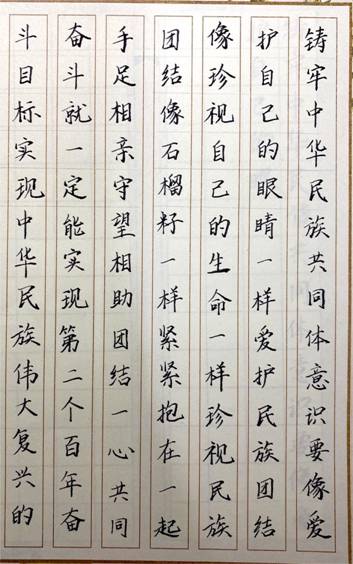 铸牢中华民族共同体意识要像爱
护自己的眼睛一样爱护民族团结
像珍视自己的生命一样珍视民族
团结像石榴籽一样紧紧抱在一起
手足相亲守望相助团结一心共同
奋斗就一定能实现第二个百年奋
斗目标实现中华民族伟大复兴的